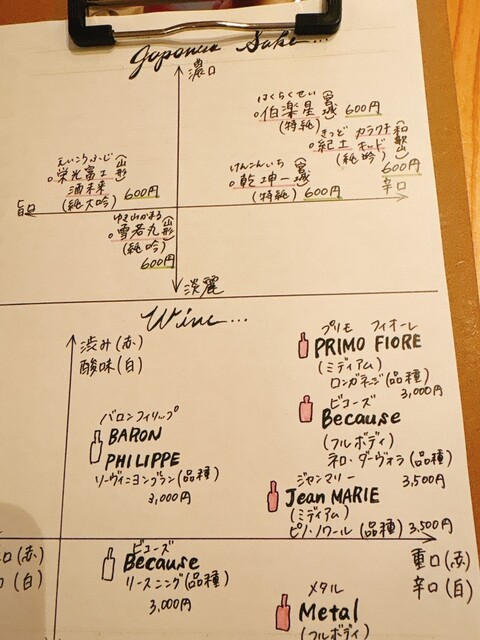 Japanese Sake...
濃口
はくらくせい
伯楽星 (宮城) 600円
(特純)
きっど カラクチ
紀土 キッド (和歌山)
(純吟)
600円
えいこうふじ
栄光冨士 (山形)
酒未来
(純大吟) 600円
けんこんいち
乾坤一 (宮城)
(特純) 600円
旨口
辛口
ゆきわかまる
雪若丸 (山形)
(純吟)
600円
淡麗
Wine...
渋み(赤)
酸味(白)
プリモ フィオーレ
PRIMO FIORE
(ミディアム)
ロンガネージ(品種)
3,000円
ビコーズ
Because
(フルボディ)
ネロ・ダーヴォラ(品種)
3,500円
バロンフィリップ
BARON
PHILIPPE
ソーヴィニヨンブラン(品種)
3,000円
ジャンマリー
Jean MARIE
(ミディアム)
ピノ・ノワール(品種) 3,500円
口(赤)
口(白)
重口(赤)
辛口(白)
ビコーズ
Because
リースニング(品種)
3,000円
メタル
Metal
(フルボディ)